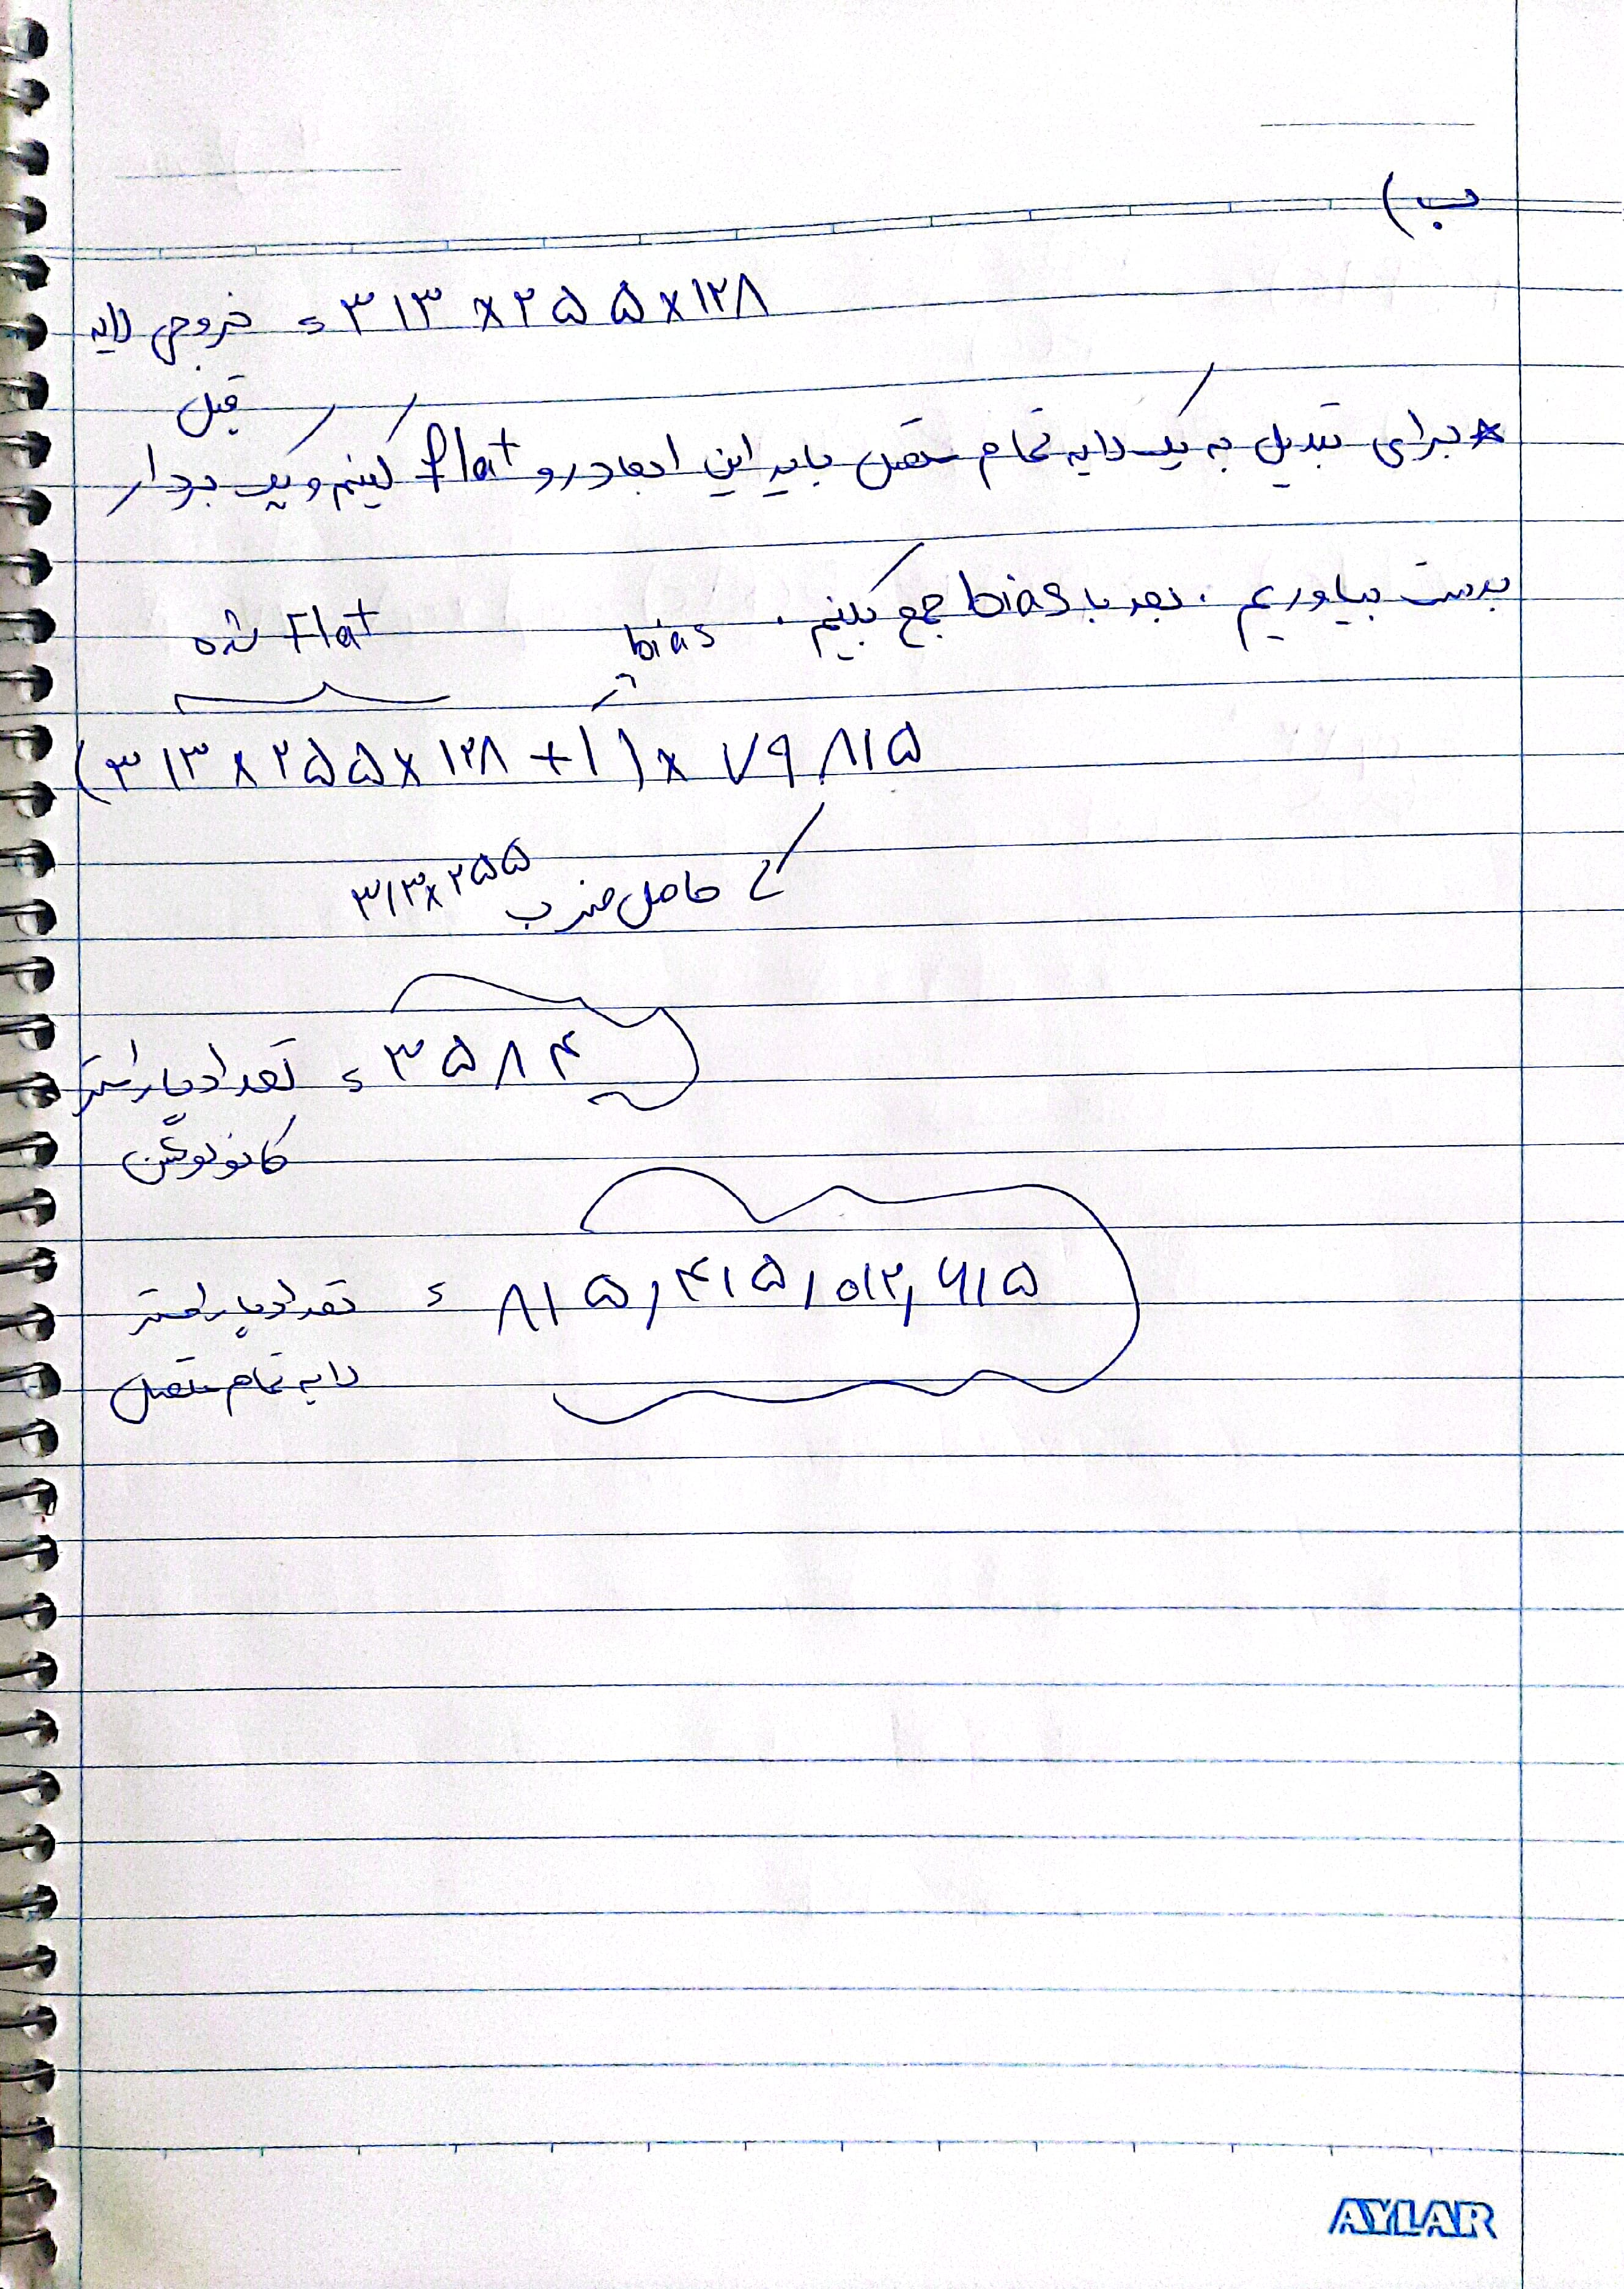 ب)
خروجی لایه قبل = ۳۱۳ × ۲۵۵ × ۱۲۸
* برای تبدیل به یک لایه تمام متصل باید این ابعاد رو flat کنیم و یک بردار
بدست بیاوریم . بعد با bias جمع کنیم .
Flat شده
bias
(۳۱۳ × ۲۵۵ × ۱۲۸ + ۱) × ۷۹۸۱۵
حاصل ضرب ۳۱۳×۲۵۵
تعداد پارامتر کانولوشن = ۳۵۸۴
تعداد پارامتر لایه تمام متصل = ۸۱۵,۴۱۵,۰۱۲,۶۱۵
AYLAR